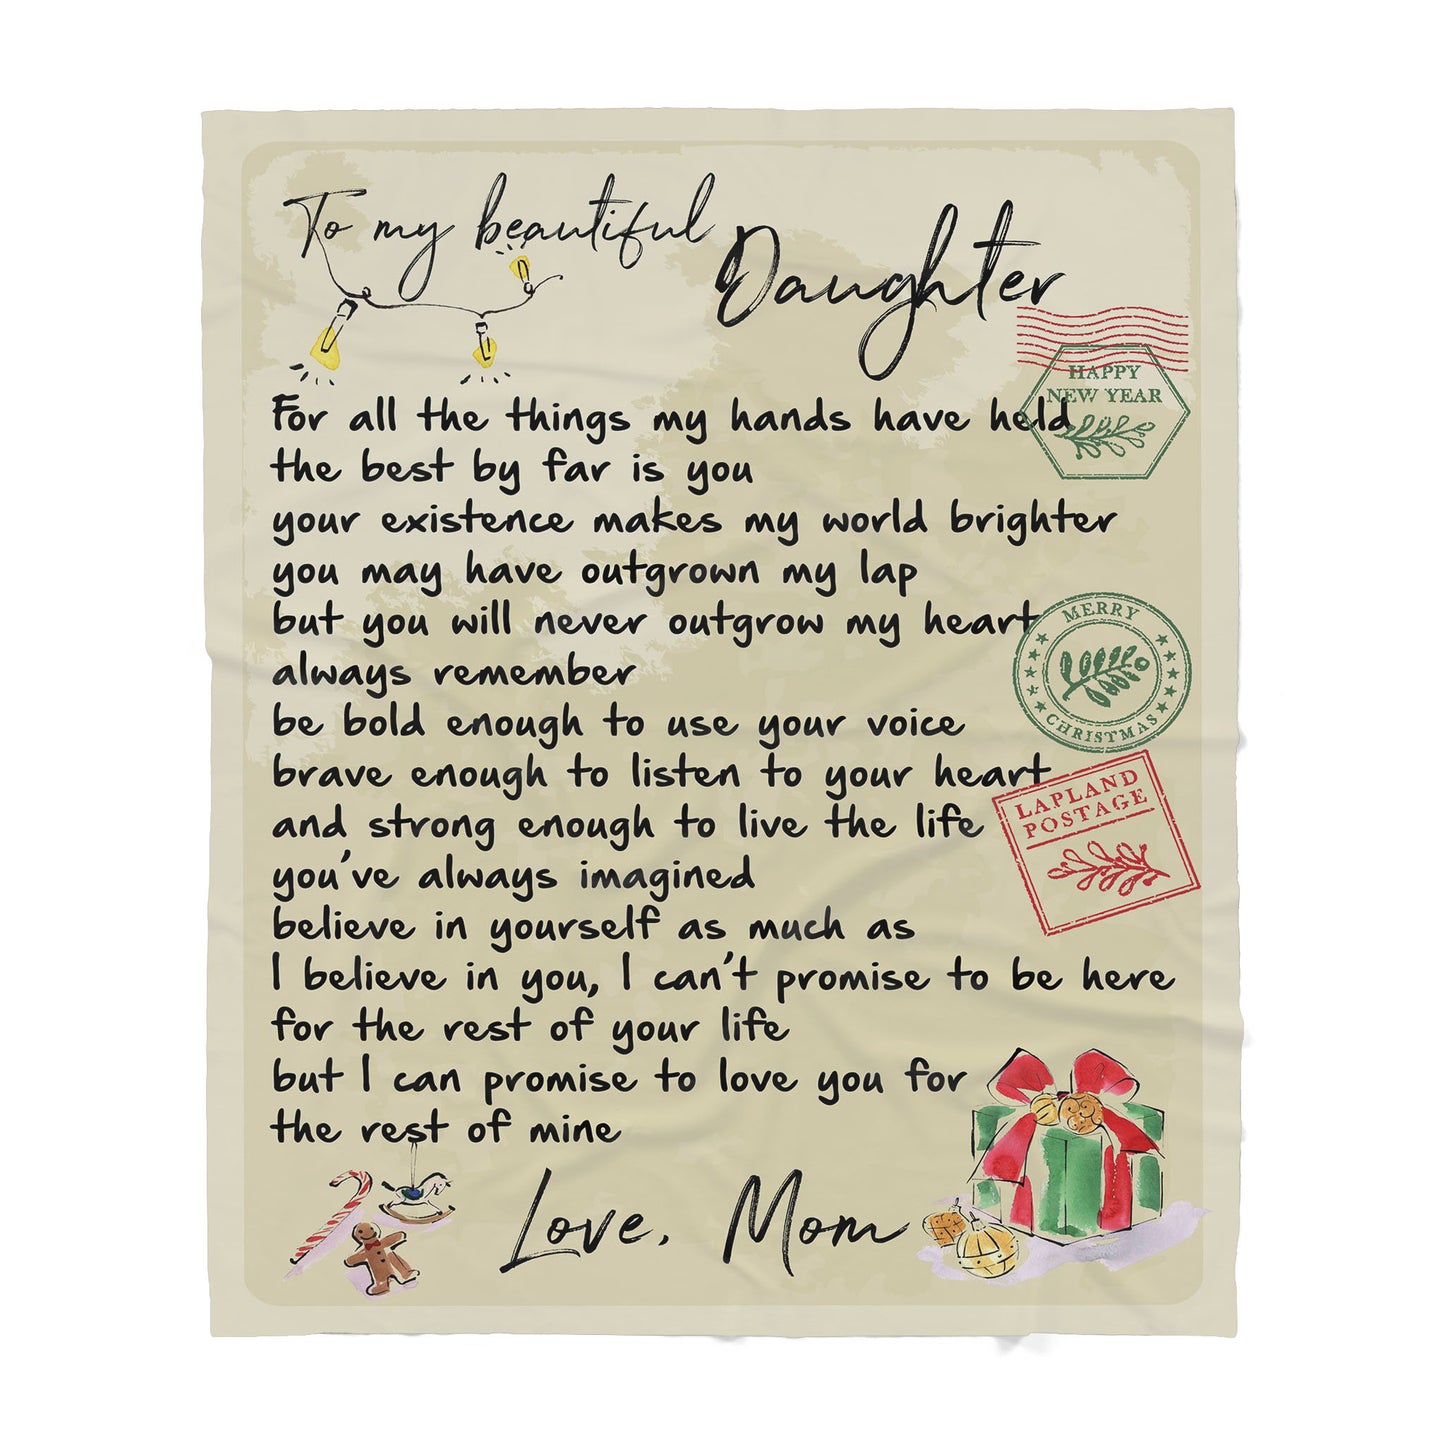 To my beautiful
Daughter
HAPPY
NEW YEAR
For all the things my hands have held
the best by far is you
your existence makes my world brighter
you may have outgrown my lap
but you will never outgrow my heart
always remember
be bold enough to use your voice
brave enough to listen to your heart
and strong enough to live the life
you've always imagined
believe in yourself as much as
I believe in you, I can't promise to be here
for the rest of your life
but I can promise to love you for
the rest of mine
MERRY
CHRISTMAS
LAPLAND
POSTAGE
Love, Mom